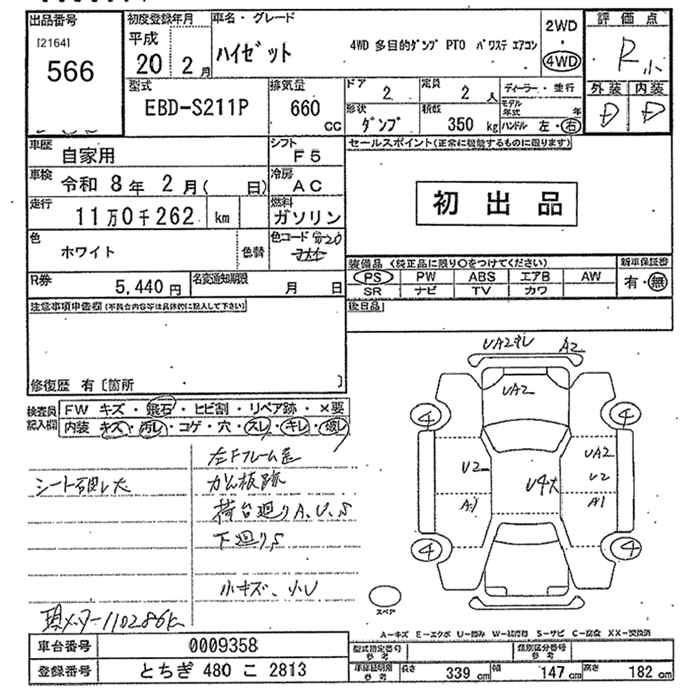 出品番号
[2164]
566
初度登録年月
平成
20 2月
車名・グレード
ハイゼット
4WD 多目的ダンプ PTO パワステ エアコン
2WD
4WD
評価点
R小
外装 内装
D D
型式
EBD-S211P
排気量
660
CC
ドア
2
定員
2人
形状
ダンプ
積載
350 kg
ディーラー・並行
モデル年式 年
ハンドル 左・右
車歴
自家用
シフト
F5
車検
令和 8年 2月( 日)
冷房
AC
走行
11万0千262 km
燃料
ガソリン
色
ホワイト
色替
色コード
R券
5,440円
名変通知期限
月 日
セールスポイント(正常に機能するものに限ります)
初出品
装備品 (純正品に限り○をつけてください)
PS PW ABS エアB AW
SR ナビ TV カワ
新車保証書
有・無
後日品
注意事項申告欄(不具合内容等は具体的に記入して下さい)
修復歴 有〔箇所 〕
検査員記入欄
FW キズ・飛石・ヒビ割・リペア跡・×要
内装 キズ・汚レ・コゲ・穴・スレ・キレ・破レ
左Fフレーム
シート破レ大
ガム板跡
荷台廻りA,U,S
下廻りS
小キズ、小U
メーター110286k
UA2 A2
UA2
4 4
U2 U4大 UA2
U2
A1 A1
4 4
スペア
A-キズ E-エクボ U-凹み W-補修跡 S-サビ C-腐食 XX-交換済
車台番号
0009358
登録番号
とちぎ 480 こ 2813
型式指定番号
参考
類別区分番号
参考
車検証明限
参考
長さ
339 cm
幅
147 cm
高さ
182 cm